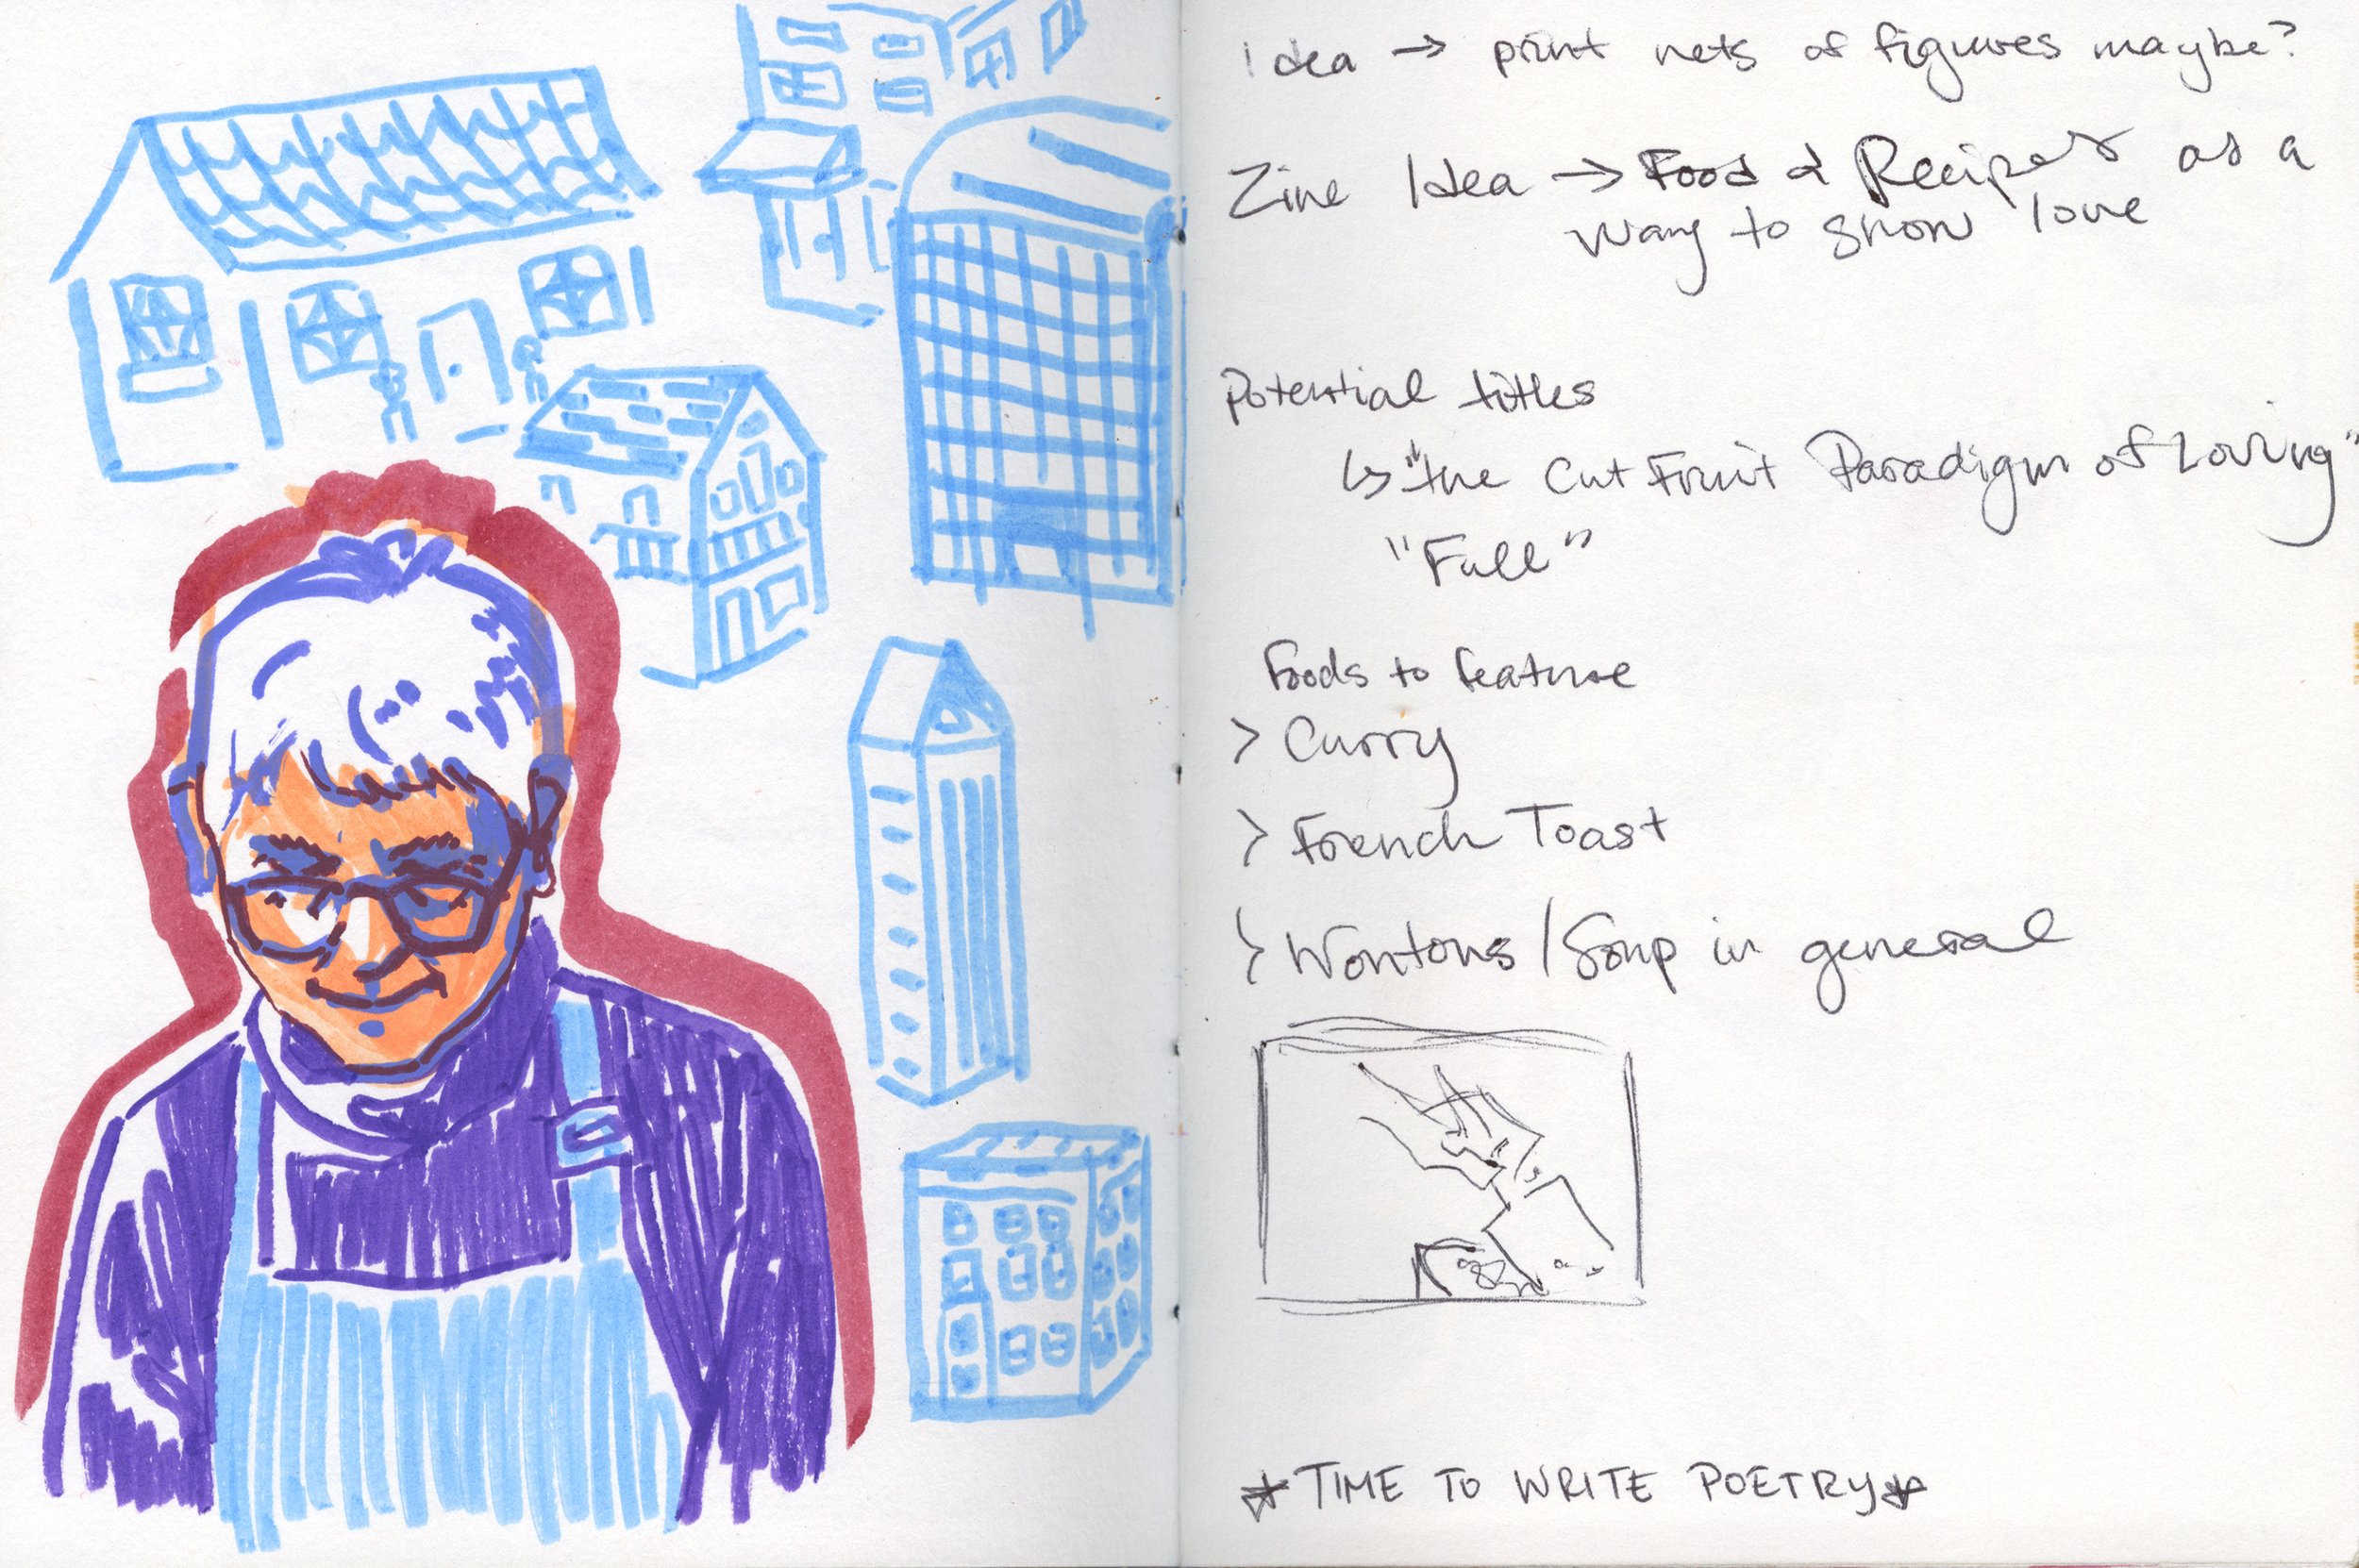 Idea → print nets of figures maybe?
Zine Idea → Food & Recipes as a
way to show love
Potential titles
↳ "The Cut Fruit Paradigm of Loving"
"Full"
Foods to feature
> Curry
> French Toast
> Wontons / Soup in general
*TIME TO WRITE POETRY*